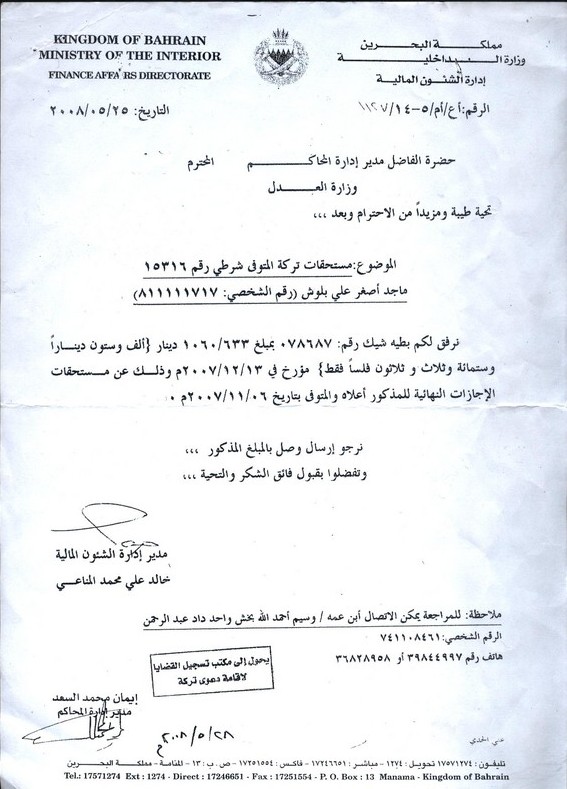 KINGDOM OF BAHRAIN
MINISTRY OF THE INTERIOR
FINANCE AFFAIRS DIRECTORATE
مملكة البحرين
وزارة الداخلية
إدارة الشئون المالية
الرقم: أع/أم/٥-١٤/١١٢٧
التاريخ: ٢٠٠٨/٠٥/٢٥
حضرة الفاضل مدير إدارة المحاكم المحترم
وزارة العدل
تحية طيبة ومزيداً من الاحترام وبعد ,,,
الموضوع: مستحقات تركة المتوفى شرطي رقم ١٥٣١٦
ماجد أصغر علي بلوش (رقم الشخصي: ٨١١١١١٧١٧)
نرفق لكم بطيه شيك رقم: ٠٧٨٦٨٧ بمبلغ ١٠٦٠/٦٣٣ دينار {ألف وستون ديناراً
وستمائة وثلاث و ثلاثون فلساً فقط} مؤرخ في ٢٠٠٧/١٢/١٣م وذلك عن مستحقات
الإجازات النهائية للمذكور أعلاه والمتوفى بتاريخ ٢٠٠٧/١١/٠٦م ٠
نرجو إرسال وصل بالمبلغ المذكور ,,,
وتفضلوا بقبول فائق الشكر والتحية ,,,
مدير إدارة الشئون المالية
خالد علي محمد المناعي
ملاحظة: للمراجعة يمكن الاتصال أبن عمه / وسيم أحمد الله بخش واحد داد عبد الرحمن
الرقم الشخصي: ٧٤١١٠٨٤٦١
هاتف رقم ٣٩٨٤٤٩٩٧ أو ٣٦٨٢٨٩٥٨
يحول إلى مكتب تسجيل القضايا
لاقامة دعوى تركة
إيمان محمد السعد
مدير إدارة المحاكم
٢٠٠٨/٥/٢٨م
تليفون: ١٧٥٧١٢٧٤ تحويل: ١٢٧٤ - مباشر: ١٧٢٤٦٦٥١ - فاكس: ١٧٢٥١٥٥٤ - ص.ب: ١٣ - المنامة - مملكة البحرين
Tel.: 17571274 Ext : 1274 - Direct : 17246651 - Fax : 17251554 - P. O. Box : 13 Manama - Kingdom of Bahrain